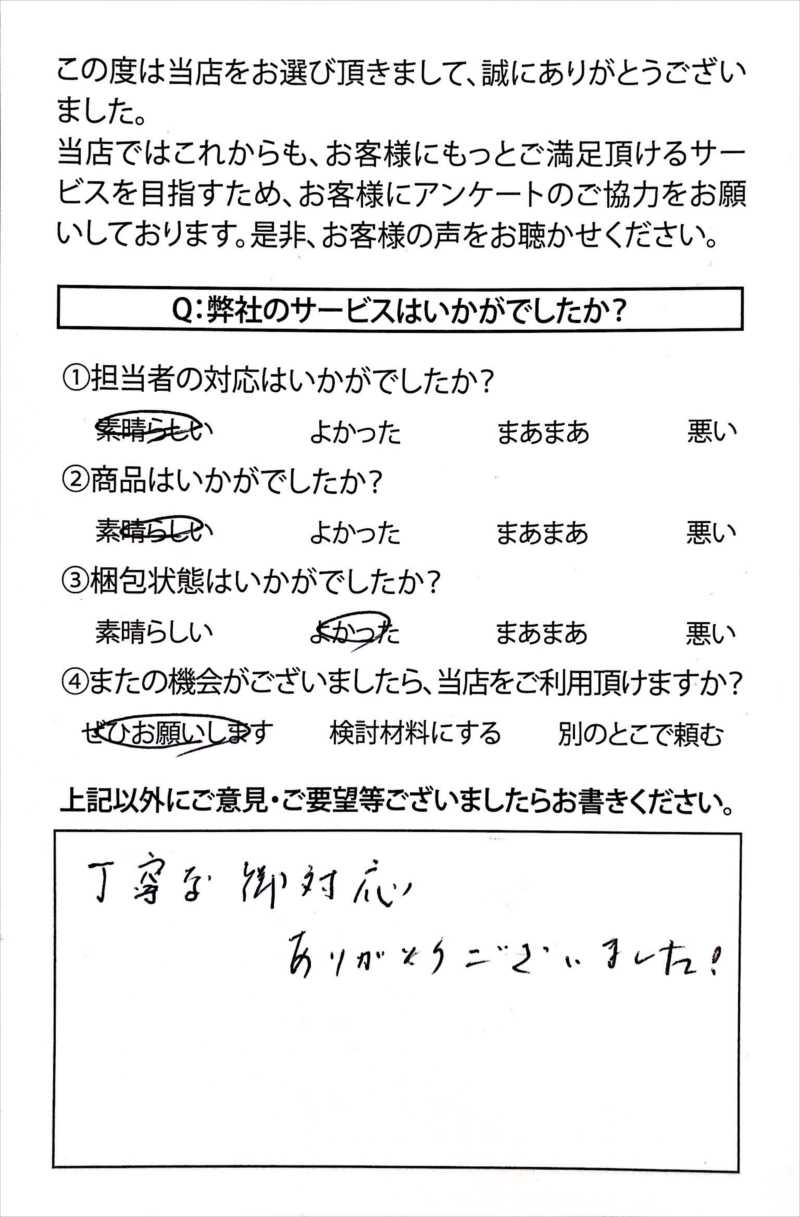 この度は当店をお選び頂きまして、誠にありがとうござい
ました。
当店ではこれからも、お客様にもっとご満足頂けるサー
ビスを目指すため、お客様にアンケートのご協力をお願
いしております。是非、お客様の声をお聴かせください。
Q：弊社のサービスはいかがでしたか？
①担当者の対応はいかがでしたか？
素晴らしい よかった まあまあ 悪い
②商品はいかがでしたか？
素晴らしい よかった まあまあ 悪い
③梱包状態はいかがでしたか？
素晴らしい よかった まあまあ 悪い
④またの機会がございましたら、当店をご利用頂けますか？
ぜひお願いします 検討材料にする 別のとこで頼む
上記以外にご意見・ご要望等ございましたらお書きください。
丁寧な御対応
ありがとうございました！